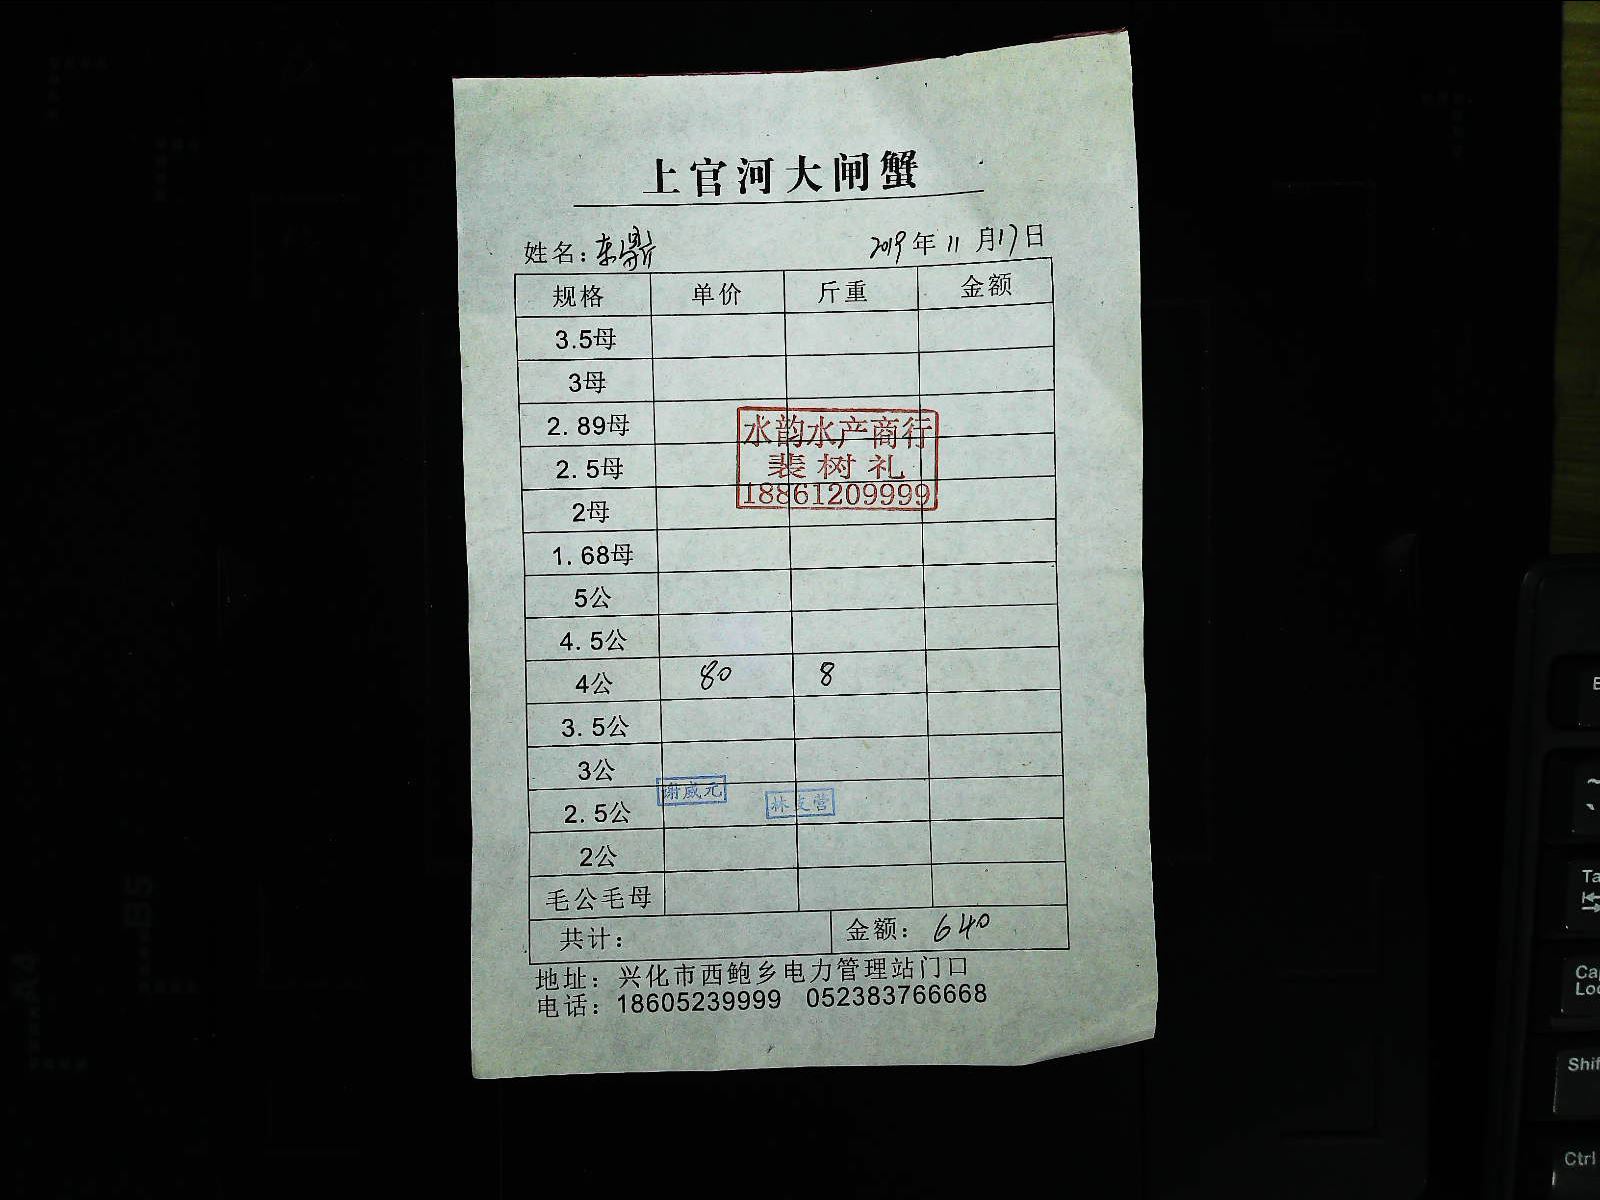 上官河大闸蟹
姓名：东鼎 2019年11月17日
规格 单价 斤重 金额
3.5母
3母
2.89母
2.5母
2母
1.68母
5公
4.5公
4公 80 8
3.5公
3公
2.5公
2公
毛公毛母
共计： 金额：640
地址：兴化市西鲍乡电力管理站门口
电话：18605239999 052383766668
水韵水产商行
裴树礼
18861209999
谢威元
林支营
B5
A4
Shif
Ctrl